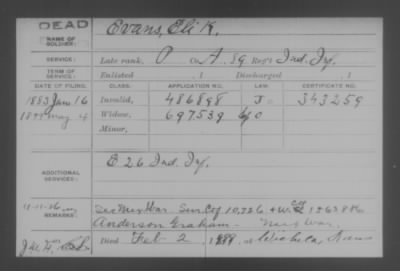 DEAD
NAME OF SOLDIER: Evans, Eli K.
SERVICE: Late rank, P Co. A, 89 Reg't Ind. Inf.
TERM OF SERVICE: Enlisted , 1 Discharged , 1
DATE OF FILING. CLASS. APPLICATION NO. LAW. CERTIFICATE NO.
1883 Jan 16 Invalid, 486898 J 343259
May 4 Widow, 697539 O
Minor,
ADDITIONAL SERVICES: E 26 Ind. Inf.
REMARKS: See Mex War. Sur. Ctf 10,726 + W.
Anderson Graham - Mex War.
Died Feb 2, 1899, at Wichita, Kans